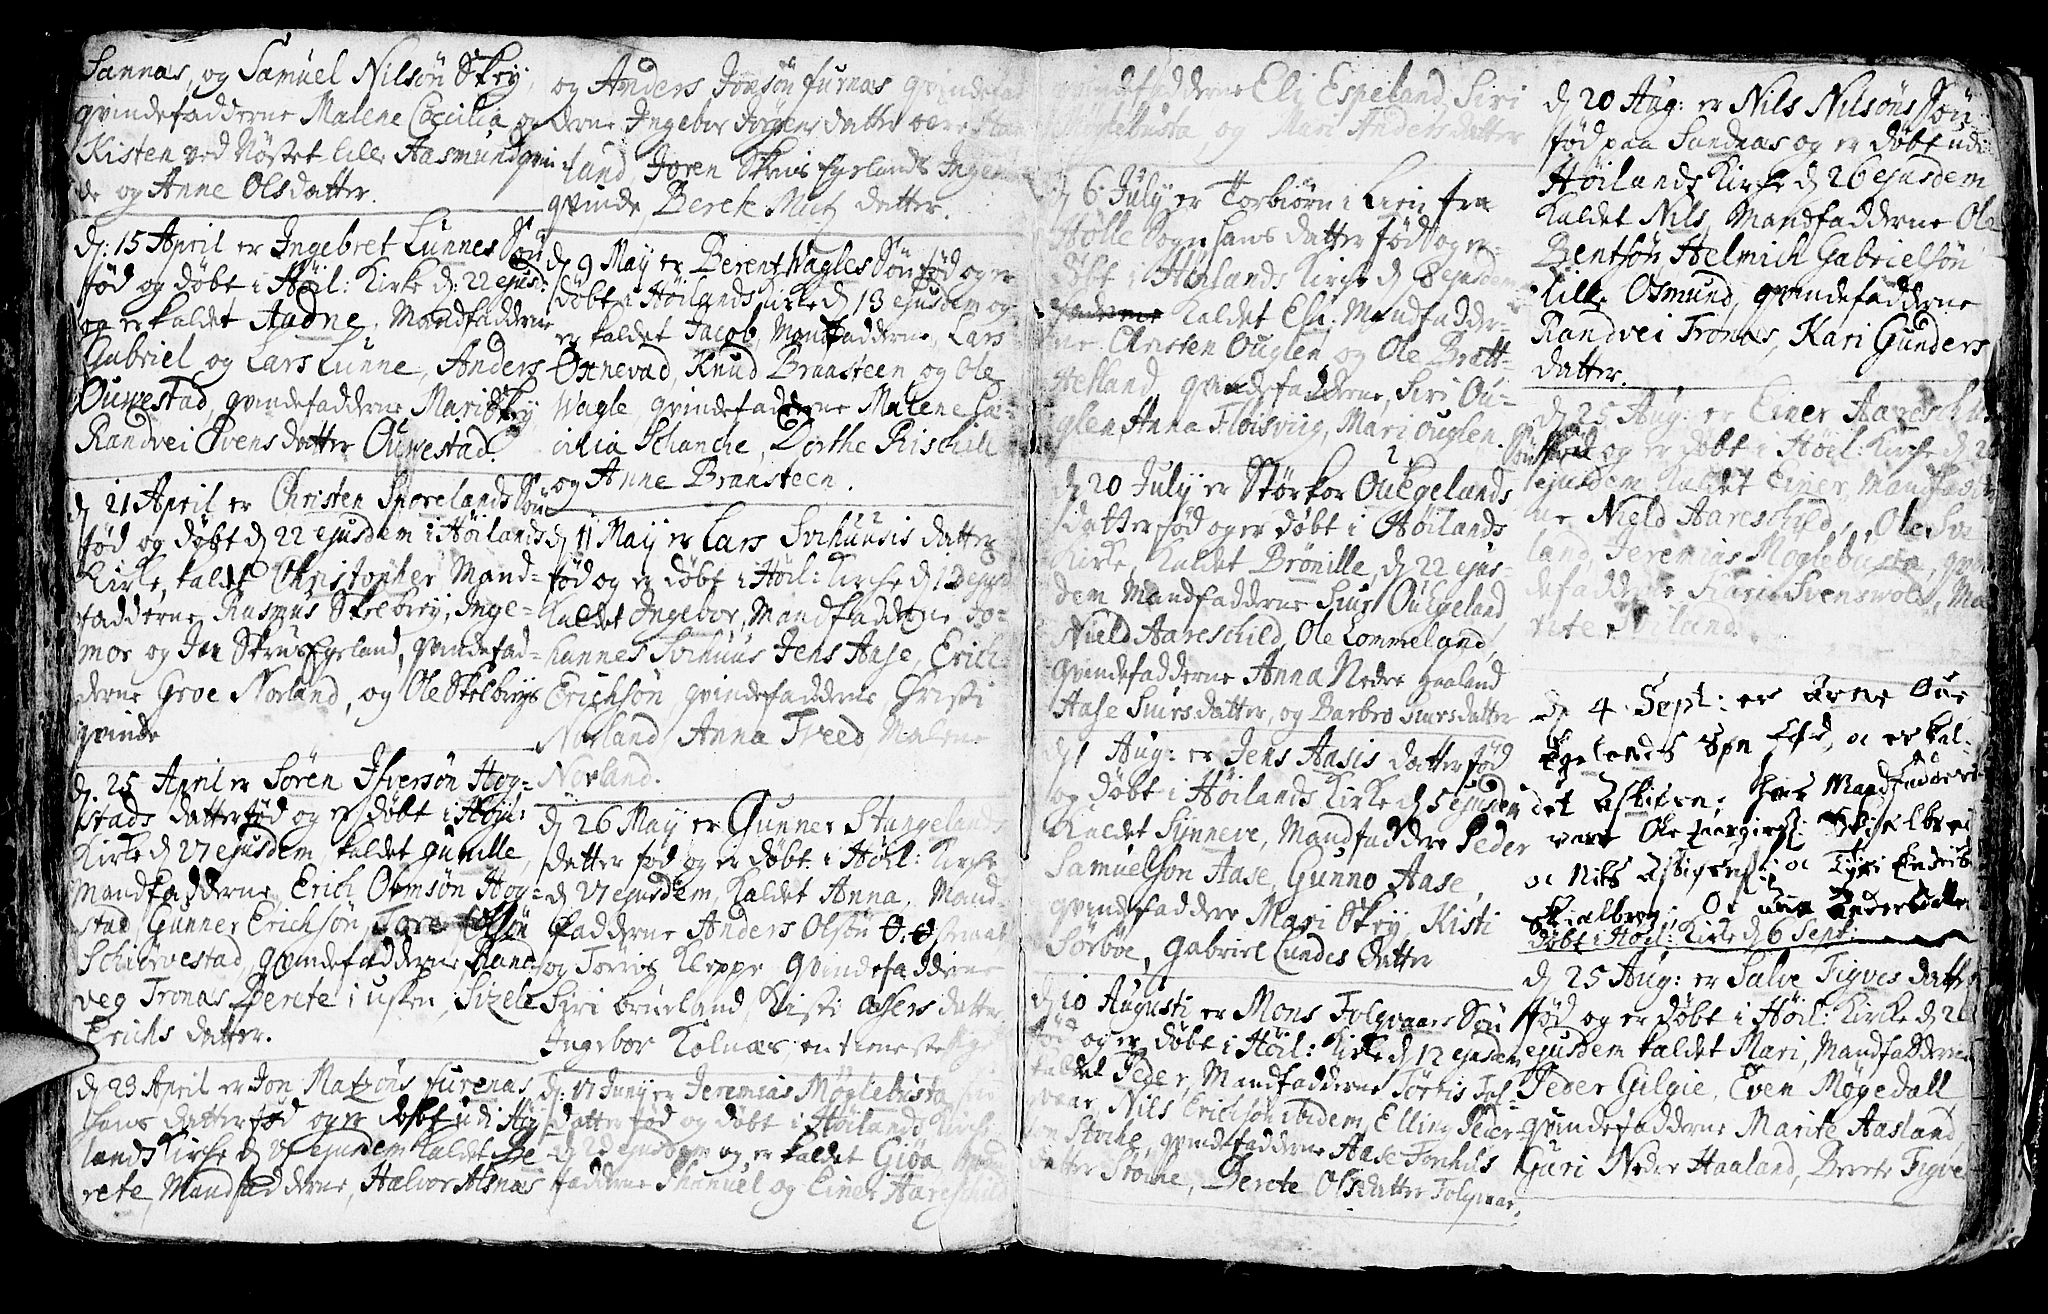 Sannas, og Samuel Nilsøn Skey,
qvindefadderne Malene Cæcilia og
Kisten ved Nøstet lille Aasmund qvin
de og Anne Olsdatter.
d: 15 April er Ingebret Lunnes Søn
fød og døbt i Höil: Kirke d: 22 ejusd:
og er kaldet Aadne, Mandfadderne
Gabriel og Lars Lunne, Anders
Ouwestad, qvindefadderne Mari Skey,
Randvei Svens datter Ouwestad.
d 21 April er Christen Sporelands Søn
fød og døbt d 22 ejusdem i Höilands
Kirke, kaldt Christopher Mand-
fadderne Rasmus Skrebrey, Inge-
mor og Jon Skrus Egeland, qvindefad-
derne Groe Norland, og Ole Skelbreys
qvinde
d. 25 April er Sören Ifversøn Hog-
stads datter fød og er døbt i Höil:
Kirke d 27 ejusdem kaldet Gunille,
Mandfadderne Erich Olensøn Hog-
stad Gunner Erichsøn, Tore Olsøn
Schiørvestad, qvindefadderne Rand-
veg Tronas Berete i usken, Sizele
Erichs datter.
d 23 April er Jon Matzøns furenas
hans datter fød og er døbt udi Höy-
lands Kirche d ejusdem kaldet Be-
rete, Mandfadderne, Halvor Alsnas
og Anders Jonsøn furnas qvindefad
derne Ingebor Jörgens datter
land, Joren Skrus Egelands Ingemor
qvinde Berete Mitz datter.
d 9 May er Berent Wagles Søn fød og er
døbt i Höilands Kirke d 13 ejusdem og
er kaldet Jacob, Mandfadderne, Lars
Osnevad, Knud Braasteen og Ole
Wagle, qvindefadderne Malene Cæ-
cilia Schanche, Dorthe Rischill
og Anne Braasteen.
d 11 May er Lars Svihuusis datter
fød og er døbt i Höil: Kirche d 13 ejusd
kaldet Ingebor, Mandfadderne Jo-
hannes Svihuus Jens Aase, Erich
Erichsøn, qvindefadderne Christi
Norland, Anna Tveed Malene
Norland.
d 26 May er Gunner Stangelands
datter fød og er døbt i Höil: Kirche
d 27 ejusdem, kaldet Anna, Mand-
fadderne Anders Olsøn
og Torris Kleppe, qvindefadderne
Siri brueland, Kisti Assers datter,
Ingebor Kolnas, en tieneste
d: 17 Junij er Jeremias Möglebusta
datter fød og døbt i Höilands Kirche
d ejusdem og er kaldet Giøa, Mand
fadderne Samuel og Einer Aareschild
qvindefadderne Eli Espeland, Siri
Möglebusta og Mari Anders datter
d 6 July er Torbiørn i Lien fra
Hølle Sogn hans datter fød og er
døbt i Höilands Kirche d 8 ejusdem
kaldet Eli: Mandfadder-
ne Christen Ouglen og Ole Bratt-
Hetland, qvindefadderne, Siri Ou-
glen Anna Floisviig, Mari Ouglen.
d 20 July er Størkor OuEgelands
datter fød og er døbt i Höilands
Kirke, kaldet Brønille, d 22 ejus-
dem Mandfadderne Siur OuEgeland,
Nield Aareschild, Ole Lommeland,
qvindefadderne Anna Nedre Haaland
Aase Siursdatter, og Barbro Siursdatter
d 1 Aug: er Jens Aasis datter fød
og døbt i Höilands Kirke d 5 ejusdem
kaldet Synneve, Mandfaddere Peder
Samuelson Aase, Gunno Aase,
qvindefaddere Mari Skey, Kisti
Sörböe, Gabriel Lundes datter
d 10 Augusti er Mons Folqvaars Søn
fød og er døbt i Höil: Kirke d 12 ejusdem
kaldet Peder, Mandfadderne Sörtis Fol-
vaar, Nils Erichsøn ibidem, Elling Peder-
søn Stoche, qvindefadderne Aase Tonhus
datter Stoche, Berete Olsdatter Folqvaar.
d 20 Aug: er Nils Nilsøns Søn
fød paa Sandnas og er døbt udi
Höilands Kirche d 26 ejusdem
Kaldet Nils, Mandfadderne Ole
Bentsøn Helmich Gabrielsøn
lille Osmund, qvindefadderne
Randvei Tronas, Kari Gunders
datter.
d 25 Aug: er Einer Aareschild
Søn fød og er døbt i Höil: Kirche d 26
ejusdem kaldet Einer, Mandfadder
ne Nield Aareschild, Ole Sve
land, Jeremias Moglebusta, qvin
defadderne Kari Svenswold, Ma
rite
d 4. Sept: er Arne Oue
Egelands Søn fød, og er kal-
det Asbiørn; hans Mandfaddere
vare Ole Skielbrei
og Nils og Tyri Endris
Skialbrey; Oc Anna Andersdatter
døbt i Höil: Kirke d 6 Sept:
d 25 Aug: er Salve Tigves datter
fød og er døbt i Höil: Kirke d 26
ejusdem kaldet Mari, Mandfadderne
Peder Gilgie, Even Møgedall
qvindefadderne Marite Aasland,
Guri Nedre Haaland, Berete Tigve